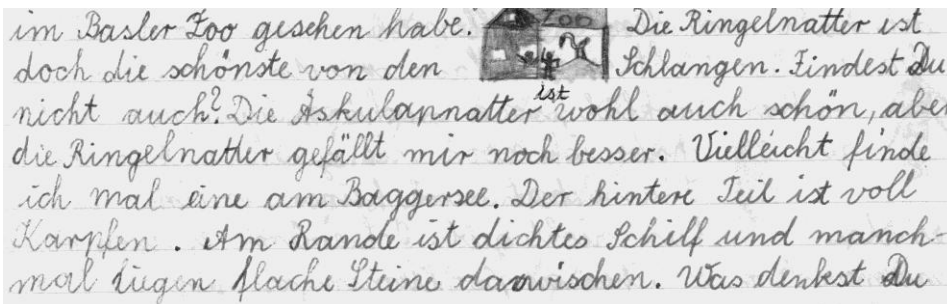 im Basler Zoo gesehen habe. Zoo Die Ringelnatter ist
doch die schönste von den Schlangen. Findest Du
nicht auch? Die Äskulapnatter ist wohl auch schön, abe
die Ringelnatter gefällt mir noch besser. Vielleicht finde
ich mal eine am Baggersee. Der hintere Teil ist voll
Karpfen. Am Rande ist dichtes Schilf und manch-
mal liegen flache Steine dazwischen. Was denkst Du